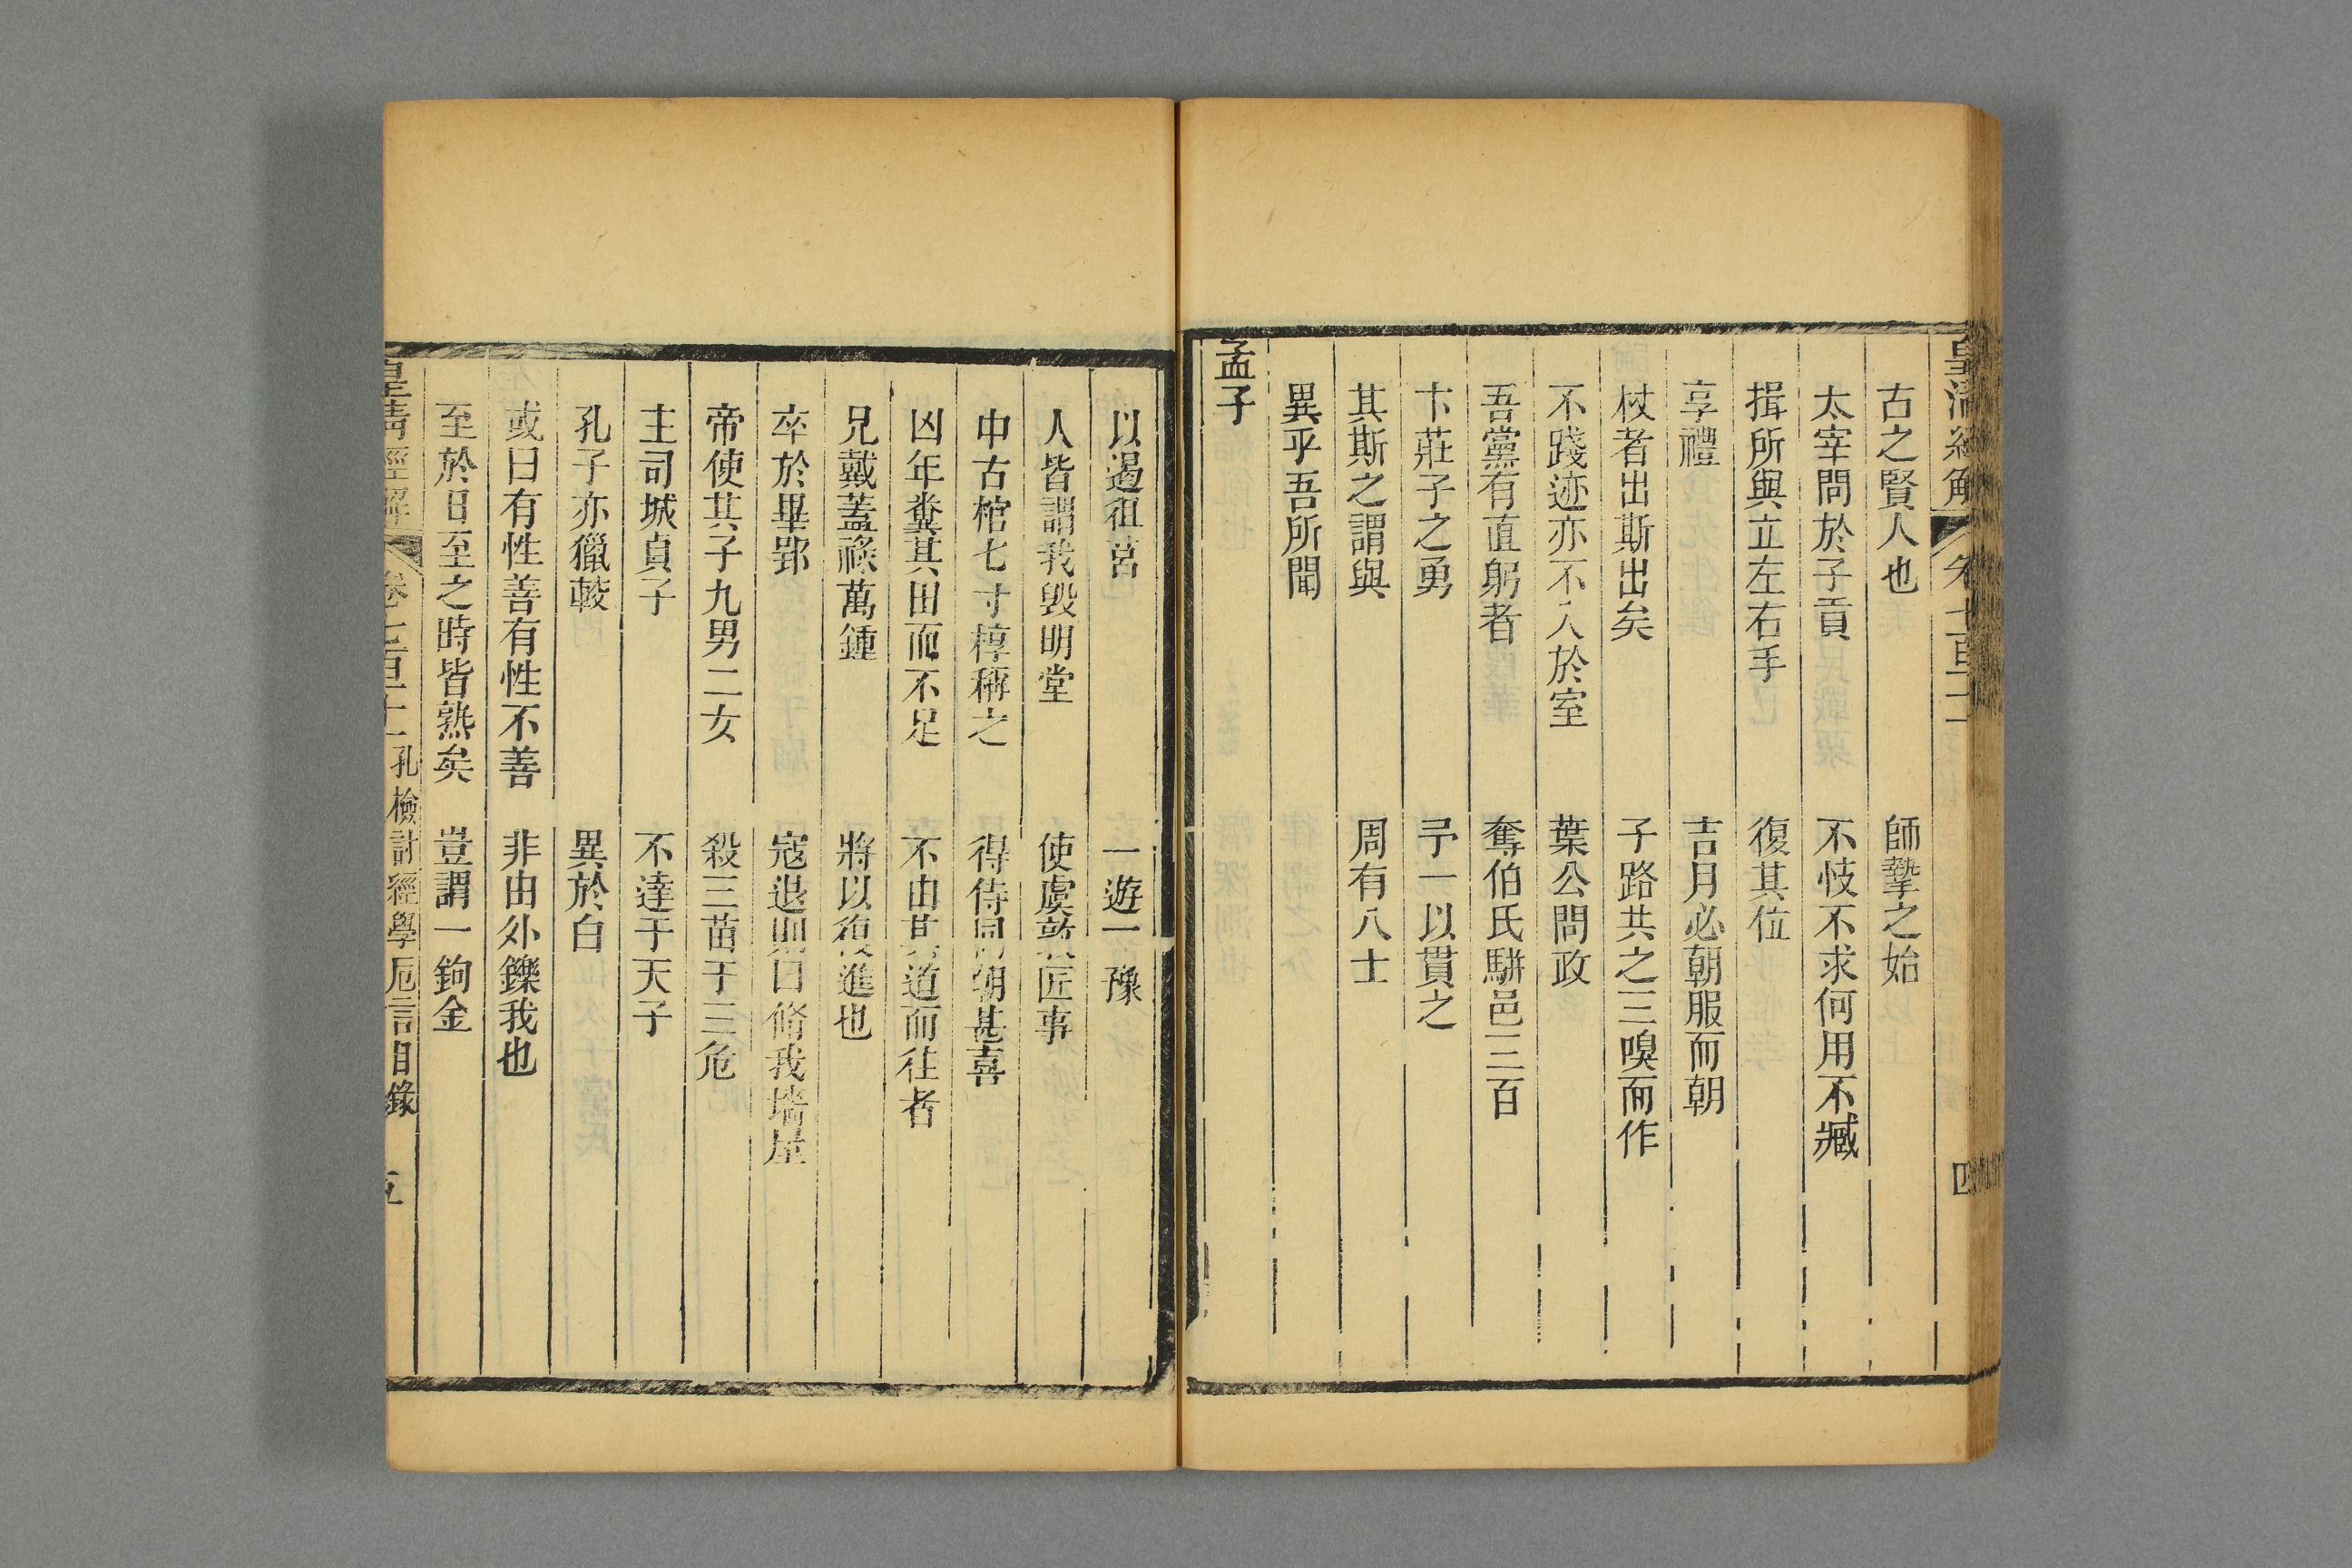 皇清經解
卷七百十一
四
古之賢人也　師摯之始
太宰問於子貢　不忮不求何用不臧
揖所與立左右手　復其位
享禮　吉月必朝服而朝
杖者出斯出矣　子路共之三嗅而作
不踐迹亦不入於室　葉公問政
吾黨有直躬者　奪伯氏駢邑三百
卞莊子之勇　予一以貫之
其斯之謂與　周有八士
異乎吾所聞
孟子
以遏徂莒　一遊一豫
人皆謂我毀明堂　使虞敦匠事
中古棺七寸椁稱之　得侍同朝甚喜
凶年糞其田而不足　不由其道而往者
兄戴蓋祿萬鍾　將以復進也
卒於畢郢　寇退則曰脩我墻屋
帝使其子九男二女　殺三苗于三危
主司城貞子　不達于天子
孔子亦獵較　異於白
或曰有性善有性不善　非由外鑠我也
至於日至之時皆熟矣　豈謂一鉤金
皇清經解
卷七百十一　孔檢討經學卮言目錄
五